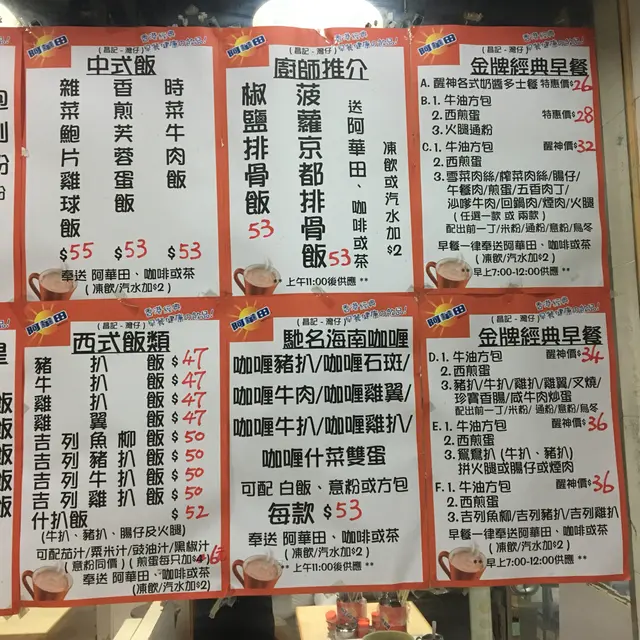 阿華田
(昌記-灣仔)
中式飯
時菜牛肉飯
香煎芙蓉蛋飯
雜菜鮑片雞球飯
$55 $53 $53
奉送 阿華田、咖啡或茶
(凍飲/汽水加$2)
阿華田
(昌記-灣仔)
廚師推介
凍飲或汽水加$2
送阿華田、咖啡或茶
菠蘿京都排骨飯
53
椒鹽排骨飯
53
**上午11:00後供應**
阿華田
(昌記-灣仔)
金牌經典早餐
A. 醒神各式奶醬多士餐 特惠價$26
B.1. 牛油方包
2. 西煎蛋 特惠價$28
3. 火腿通粉
C.1. 牛油方包 醒神價$32
2. 西煎蛋
3. 雪菜肉絲/榨菜肉絲/腸仔/
午餐肉/煎蛋/五香肉丁/
沙嗲牛肉/回鍋肉/煙肉/火腿
(任選一款 或 兩款)
配出前一丁/米粉/通粉/意粉/烏冬
早餐一律奉送阿華田、咖啡或茶
(凍飲/汽水加$2)
**早上7:00-12:00供應**
阿華田
(昌記-灣仔)
西式飯類
豬扒飯 $47
牛扒飯 $47
雞扒飯 $47
雞翼飯 $47
吉列魚柳飯 $50
吉列豬扒飯 $50
吉列牛扒飯 $50
吉列雞扒飯 $50
什扒飯 $52
(牛扒、豬扒、腸仔及火腿)
可配茄汁/粟米汁/豉油汁/黑椒汁
(意粉同價) (煎蛋每只加$6)
奉送 阿華田、咖啡或茶
(凍飲/汽水加$2)
阿華田
(昌記-灣仔)
馳名海南咖喱
咖喱豬扒/咖喱石斑/
咖喱牛肉/咖喱雞翼/
咖喱牛扒/咖喱雞扒/
咖喱什菜雙蛋
可配 白飯、意粉或方包
每款 $53
奉送 阿華田、咖啡或茶
(凍飲/汽水加$2)
**上午11:00後供應**
阿華田
(昌記-灣仔)
金牌經典早餐
D.1. 牛油方包 醒神價$34
2. 西煎蛋
3. 豬扒/牛扒/雞扒/雞翼/叉燒/
珍寶香腸/咸牛肉炒蛋
配出前一丁/米粉/通粉/意粉/烏冬
E.1. 牛油方包 醒神價$36
2. 西煎蛋
3. 鴛鴦扒 (牛扒、豬扒)
拼火腿或腸仔或煙肉
F.1. 牛油方包 醒神價$36
2. 西煎蛋
3. 吉列魚柳/吉列豬扒/吉列雞扒
早餐一律奉送阿華田、咖啡或茶
(凍飲/汽水加$2)
**早上7:00-12:00供應**